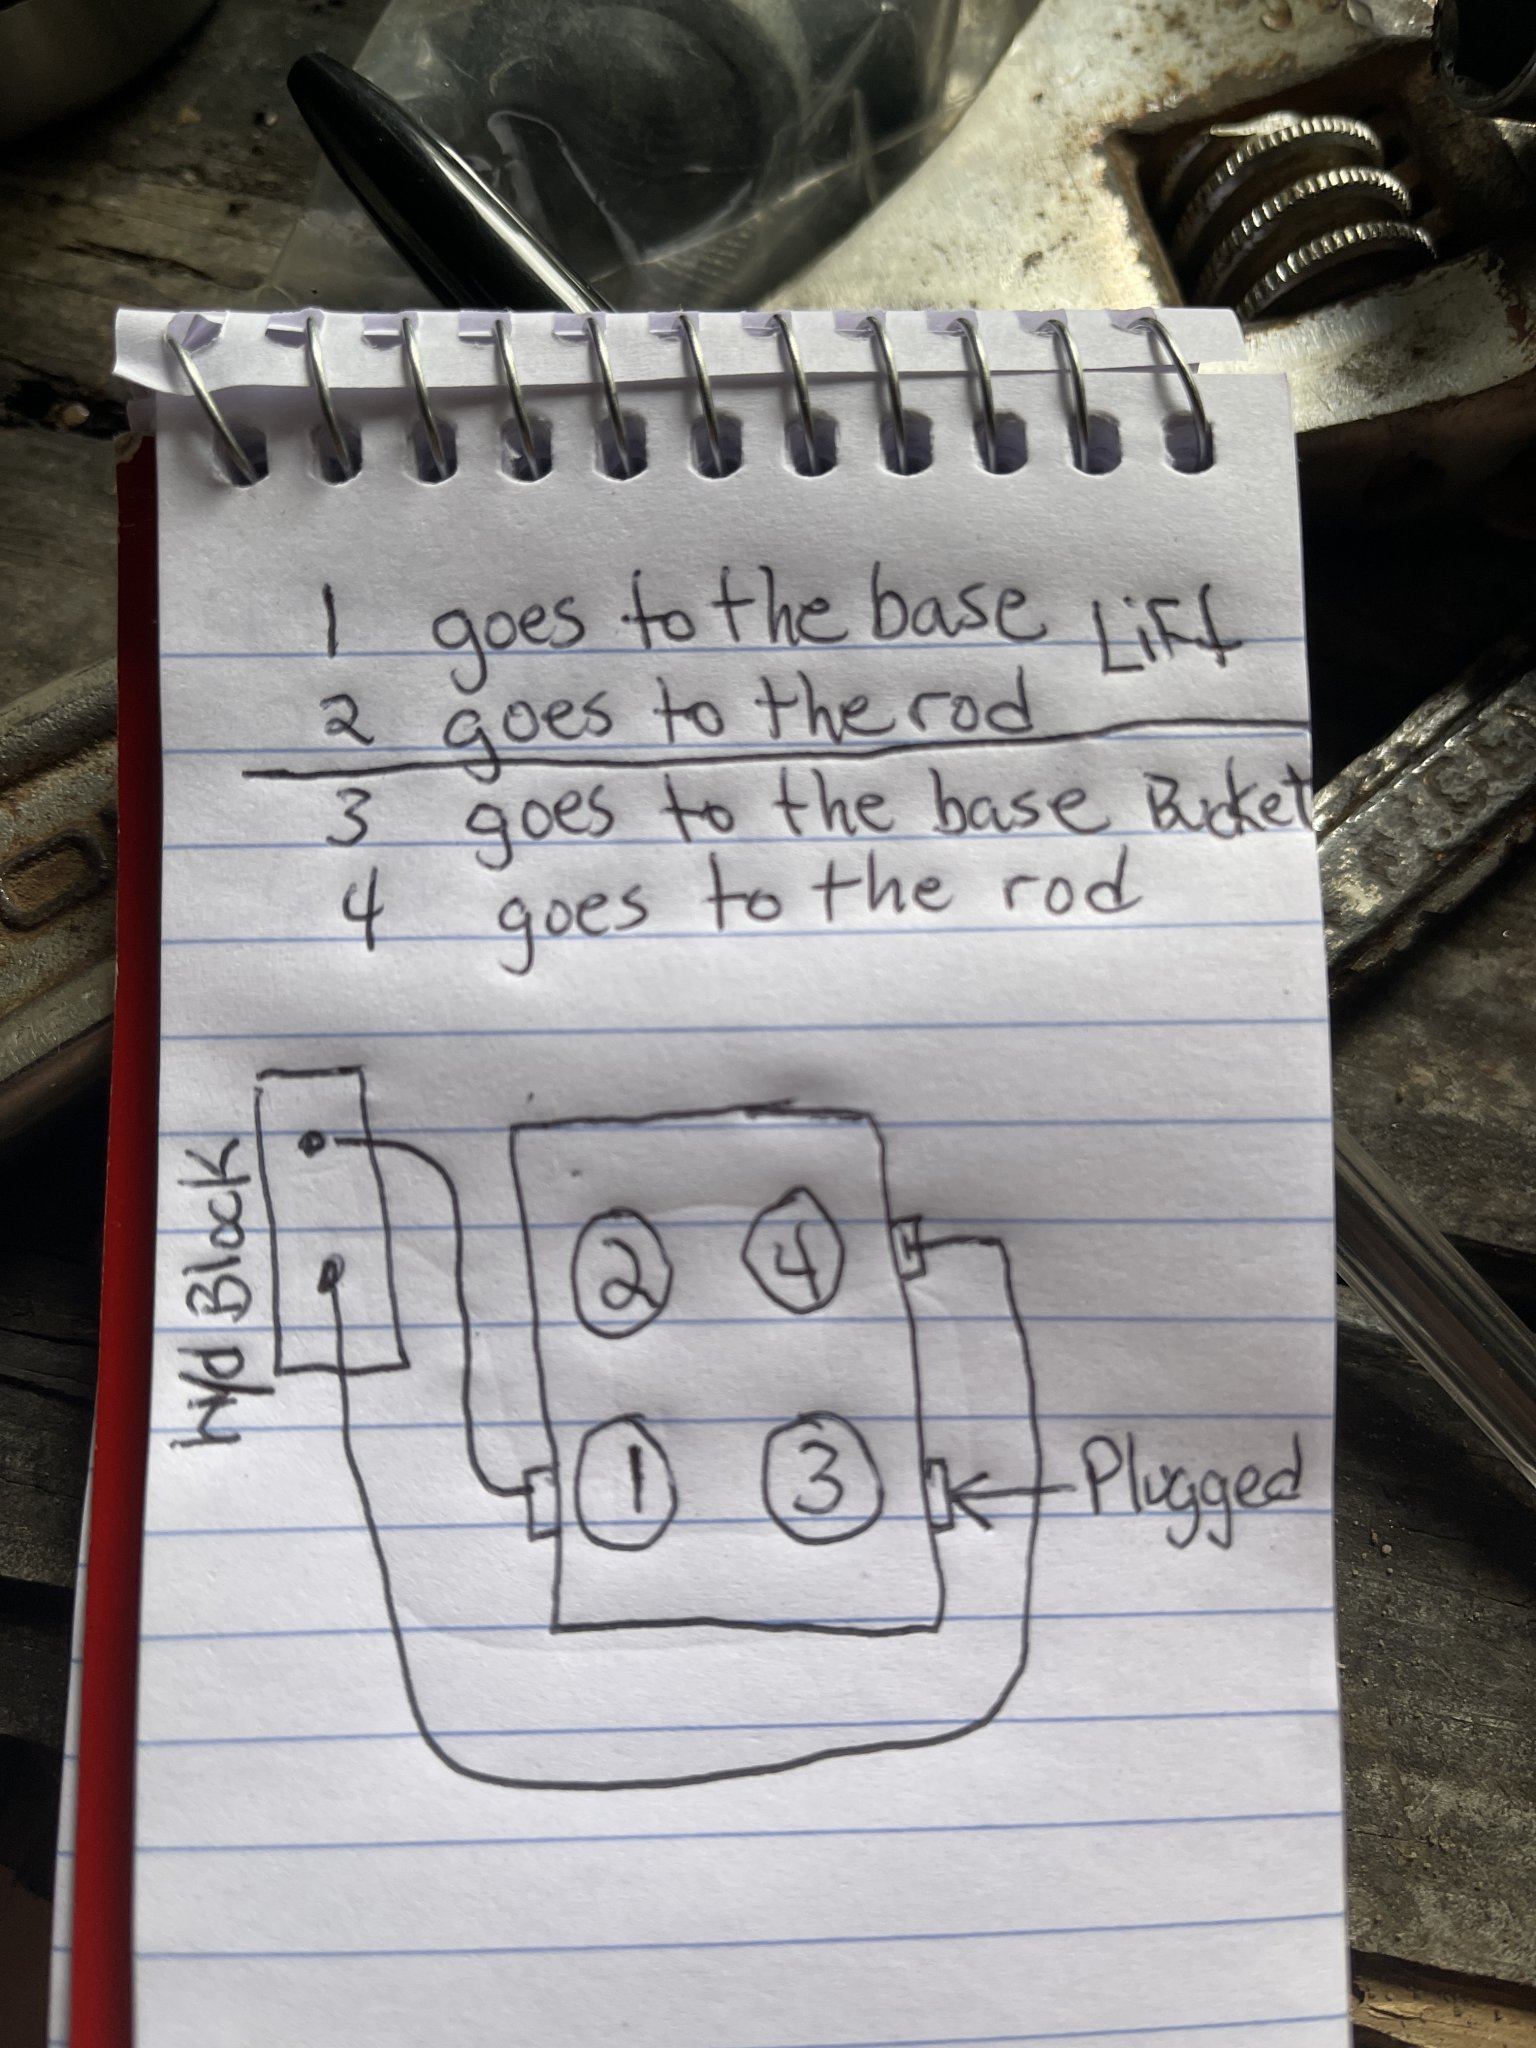 1 goes to the base Lift
2 goes to the rod
3 goes to the base Bucket
4 goes to the rod
hyd Block
2 4
1 3
Plugged